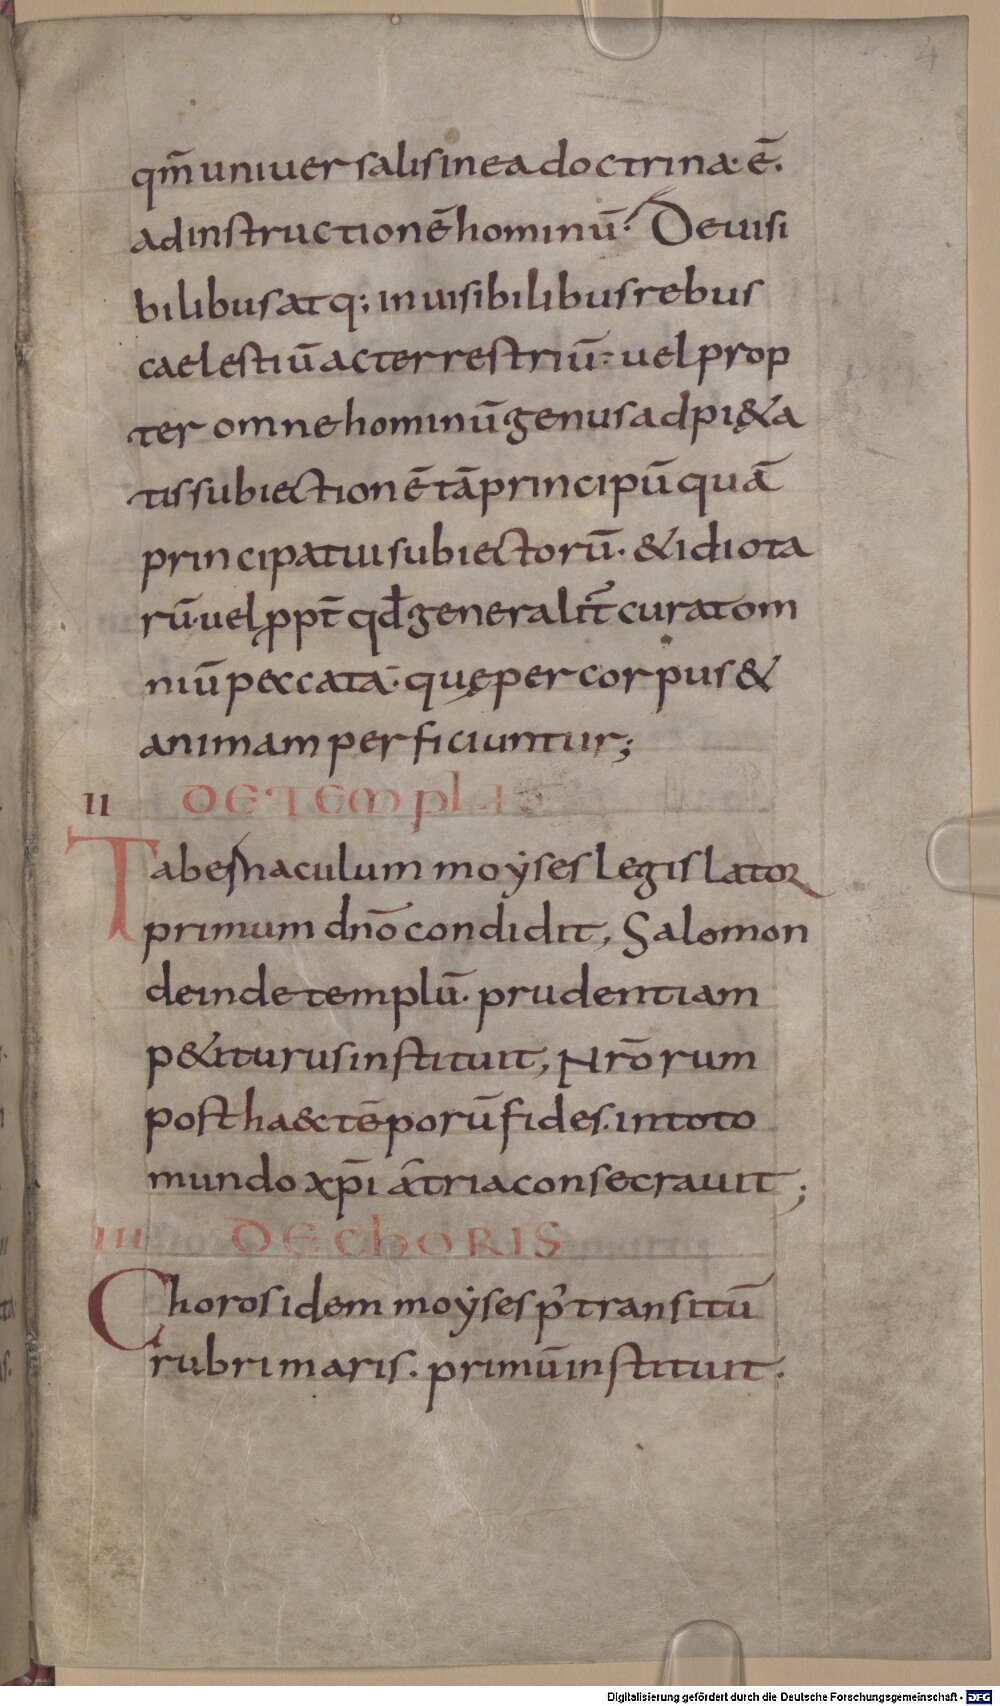 4
qm̄ uniuersalis in ea doctrina· ē·
ad instructionē hominū· De uisi
bilibus atq; inuisibilibus rebus
caelestiū ac terrestriū· uel prop
ter omne hominū genus ad pi&a
tis subiectionē tā principū quā
principatui subiectorū· & idiota
rū· uel ꝓpt̄ qd̄ generalit̄ curat om
niū peccata· quę per corpus &
animam perficiuntur;
II DE TEMPLIS
Tabernaculum moẏses legislator
primum dn̄o condidit, Salomon
deinde templū· prudentiam
p&iturus instituit, Nr̄orum
post ha&c tēporū fides· in toto
mundo xp̄i atria consecrauit;
III DE CHORIS
Choros idem moẏses p' transitū
rubri maris· primū instituit·
Digitalisierung gefördert durch die Deutsche Forschungsgemeinschaft - DFG